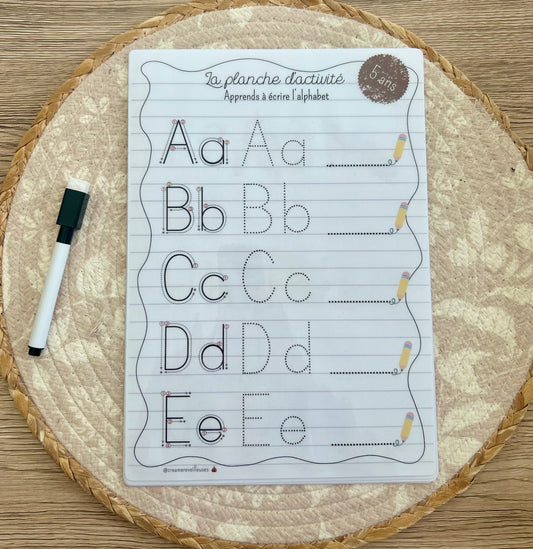 La planche d'activité
5 ans
Apprends à écrire l'alphabet
Aa Aa
Bb Bb
Cc Cc
Dd Dd
Ee Ee
@creamereveilleuses